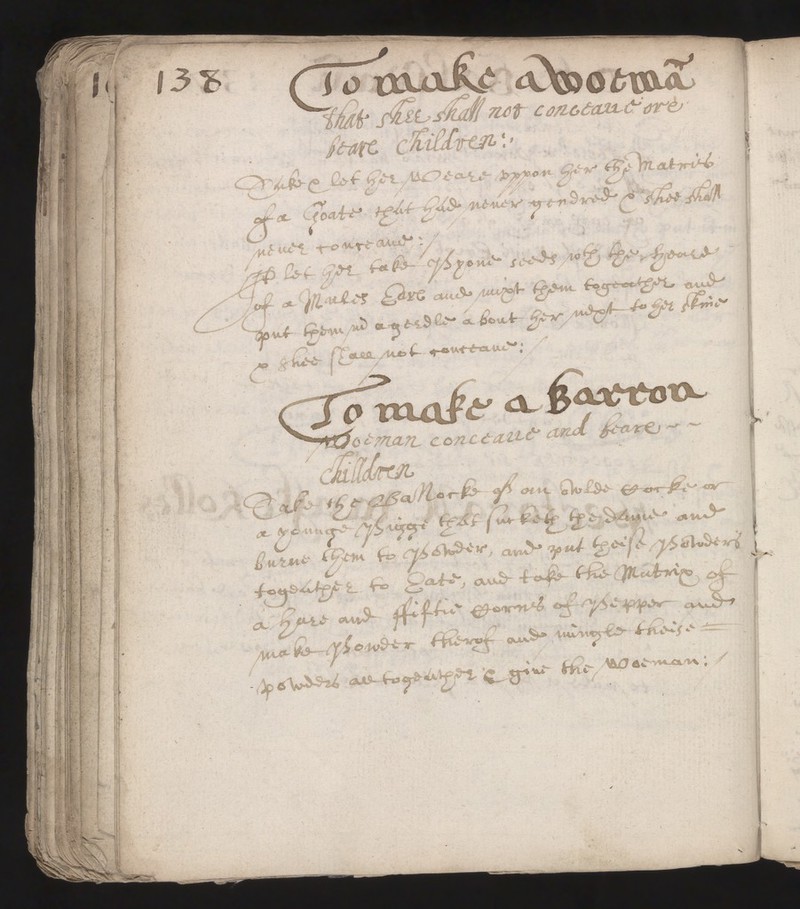 138
To make a woemā
that shee shall not conceaue ore
beare Children:
Take & let her weare vppon her the Matrics
of a Goate that had never gendred & shee shall
never conceaue:/
let her take Pyone seeds wth the heare
of a Mules Eare and mixt them togeather and
put them in a gerdle about her next to her skine
& shee shall not conceaue:/
To make a Barron
Woeman conceaue and beare ~ ~
Children
Take the Ballocke of an owlde Cocke or
a younge Pigge that sucketh the damme and
burne them to Powder, and put theise Powders
togeather to Eate, and take the Matrix of
a Hare and ffiftie Cornes of Pepper and
make Powder therof and mingle theise =
powders all togeather & giue the Woeman:/